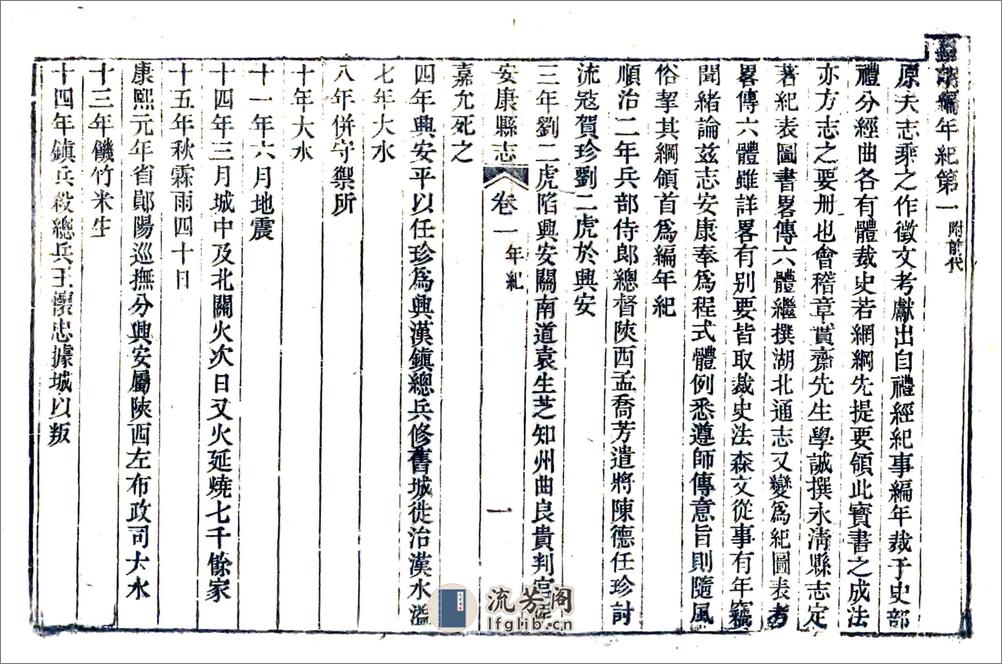 編年紀第一 附前代
原夫志乘之作徵文考獻出自禮經紀事編年裁于史部
禮分經曲各有體裁史若網綱先提要領此實書之成法
亦方志之要刑也會稽章實齋先生學誠撰永清縣志定
著紀表圖書畧傳六體繼撰湖北通志又變爲紀圖表考
畧傳六體雖詳畧有别要皆取裁史法森文從事有年竊
聞緒論兹志安康奉爲程式體例悉遵師傳意旨則隨風
俗挈其綱領首爲編年紀
順治二年兵部侍郎總督陜西孟喬芳遣將陳德任珍討
流寇賀珍劉二虎於興安
三年劉二虎陷興安關南道袁生芝知州曲良貴判官
安康縣志 卷一 年紀 一
嘉允死之
四年興安平以任珍爲興漢鎮總兵修舊城徙治漢水溢
七年大水
八年併守禦所
十年大水
十一年六月地震
十四年三月城中及北關火次日又火延燒七千餘家
十五年秋霖雨四十日
康熙元年省鄖陽巡撫分興安屬陜西左布政司大水
十三年饑竹米生
十四年鎮兵殺總兵王懷忠據城以叛
流芳阁
lfglib.cn